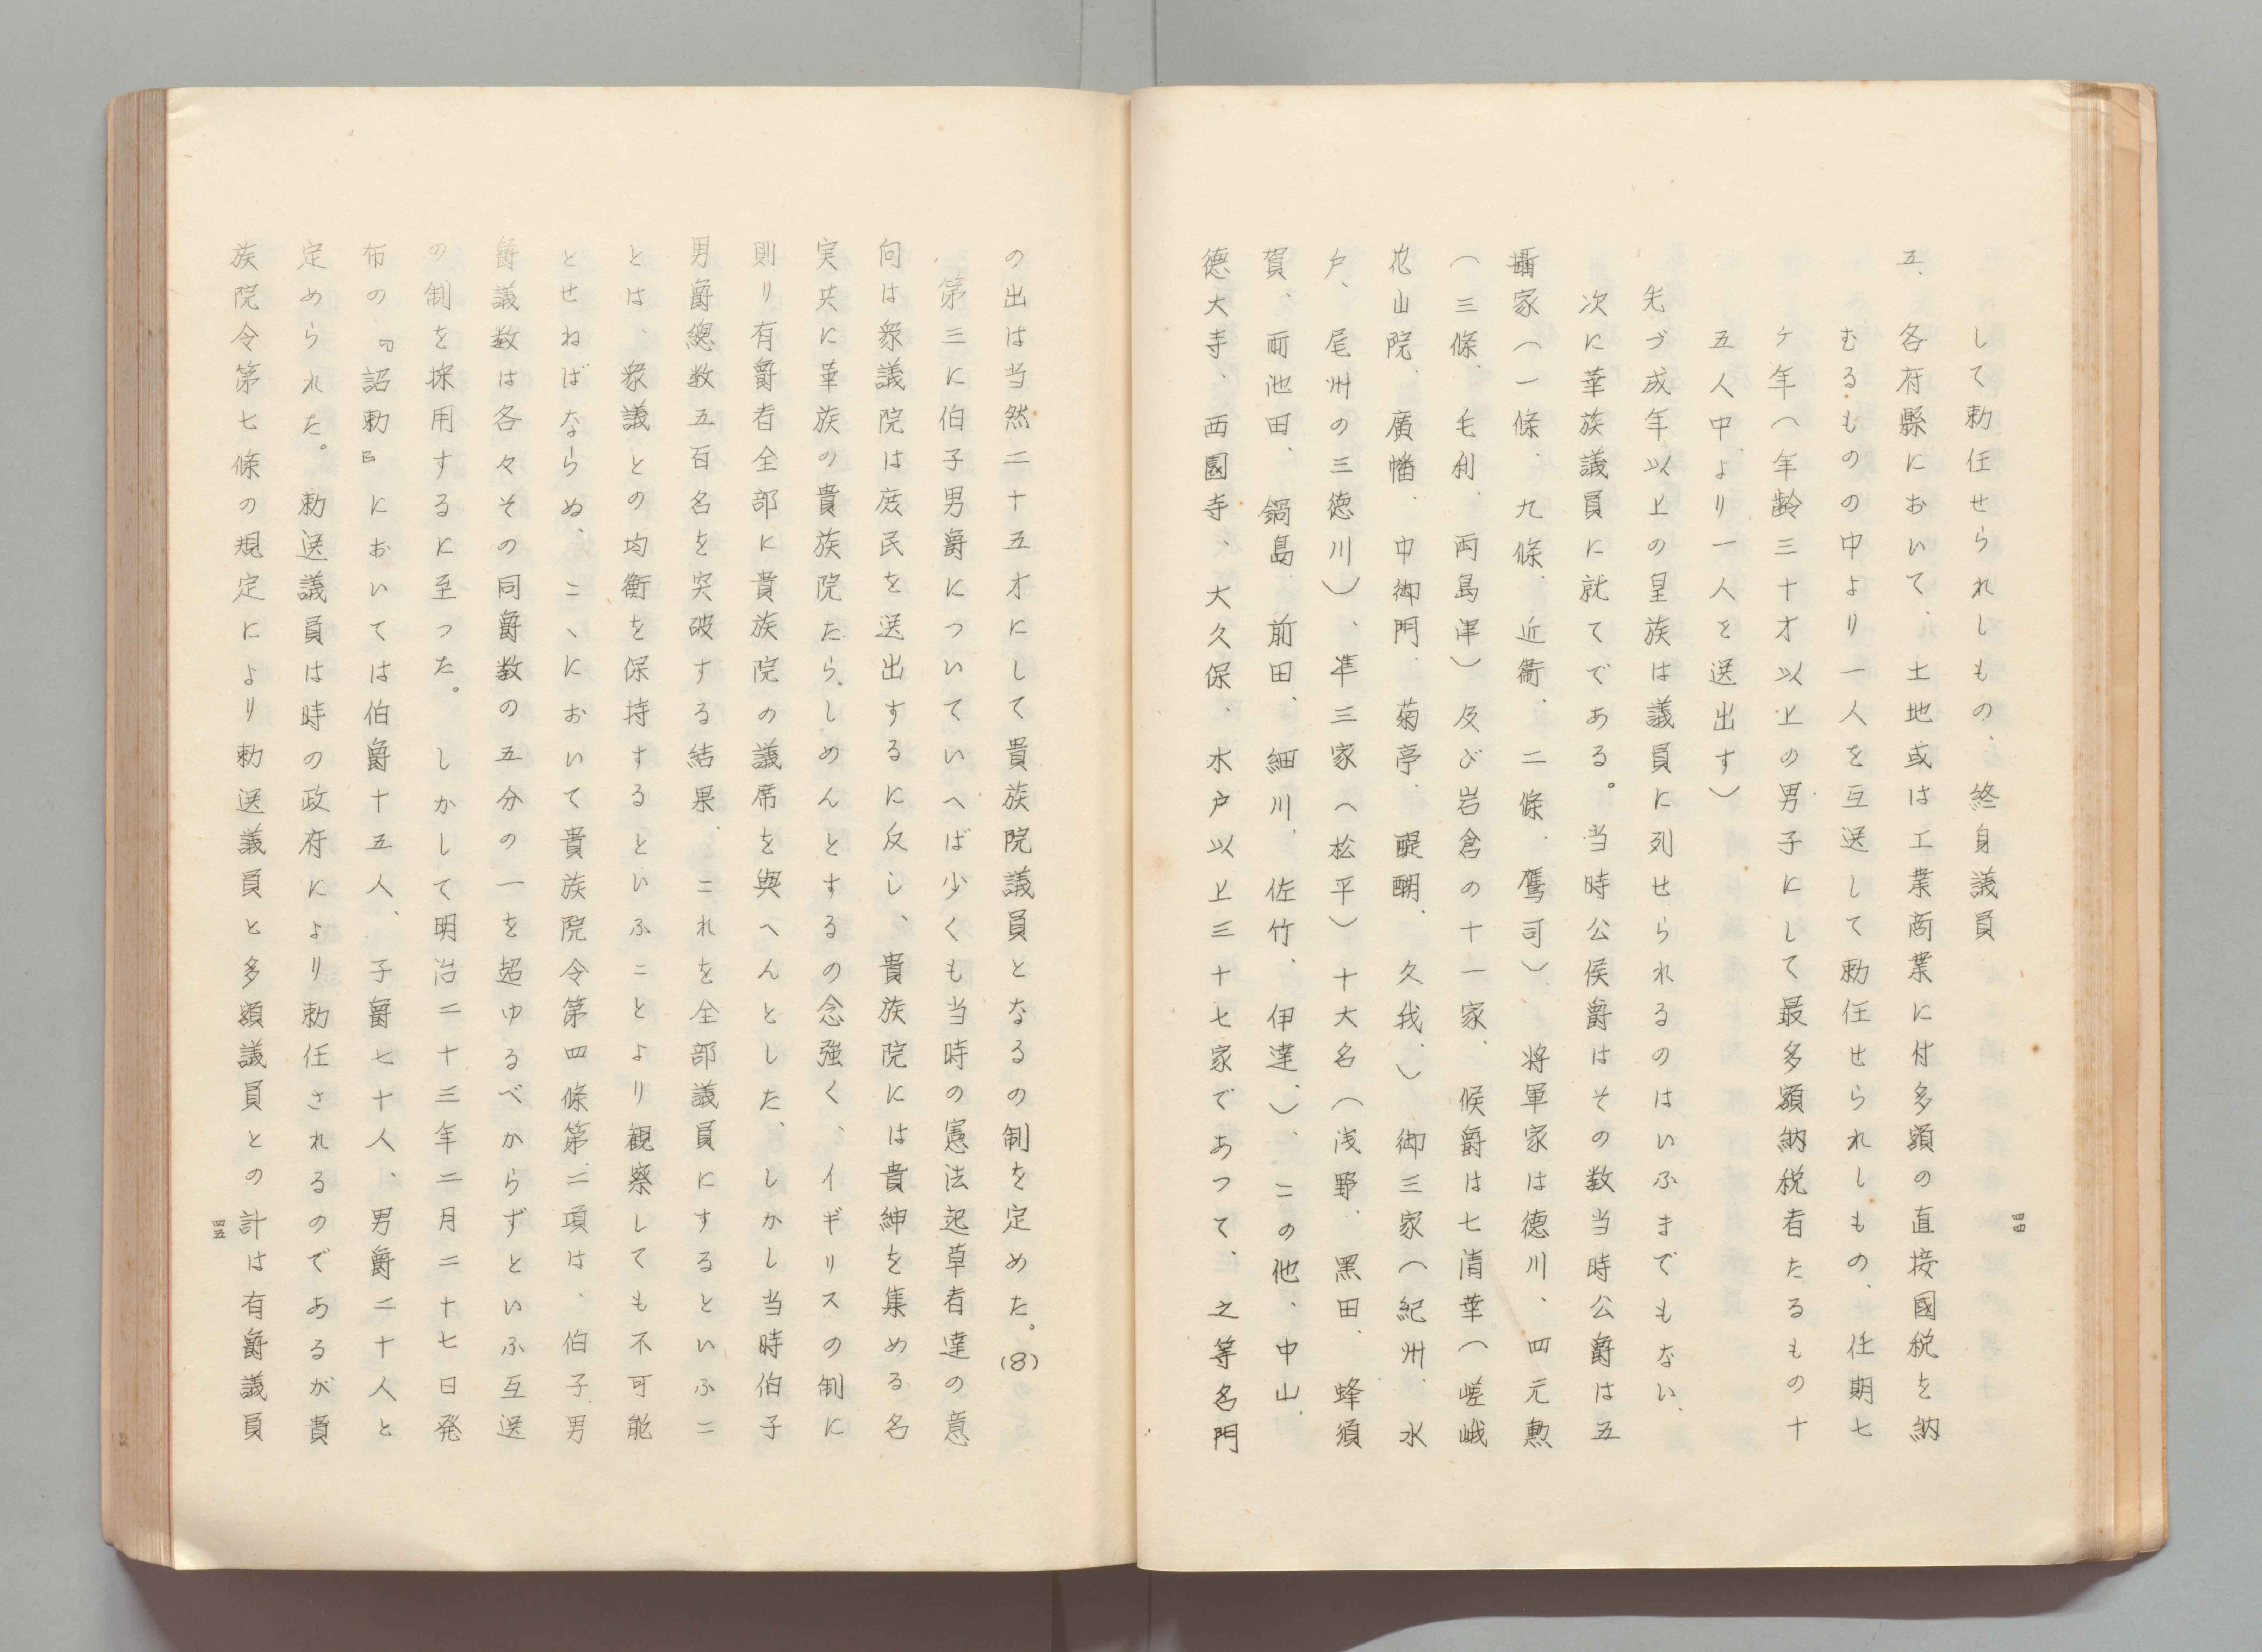 四四
して勅任せられしもの、終身議員
五、各府縣において、土地或は工業商業に付多額の直接國税を納
むるものの中より一人を互選して勅任せられしもの、任期七
ケ年（年齢三十才以上の男子にして最多額納税者たるもの十
五人中より一人を送出す）
先づ成年以上の皇族は議員に列せられるのはいふまでもない、
次に華族議員に就てである。当時公侯爵はその数当時公爵は五
攝家（一條、九條、近衞、二條、鷹司）将軍家は徳川、四元勲
（三條、毛利、両島津）及び岩倉の十一家、候爵は七清華（嵯峨
花山院、廣幡、中御門、菊亭、醍醐、久我、）御三家（紀州、水
戸、尾州の三徳川）、準三家（松平）十大名（浅野、黒田、蜂須
賀、両池田、鍋島、前田、細川、佐竹、伊達、）、この他、中山、
徳大寺、西園寺、大久保、木戸以上三十七家であつて、之等名門
の出は当然二十五才にして貴族院議員となるの制を定めた。(8)
第三に伯子男爵についていへば少くも当時の憲法起草者達の意
向は衆議院は庶民を送出するに反し、貴族院には貴紳を集める名
実共に華族の貴族院たらしめんとするの念強く、イギリスの制に
則り有爵者全部に貴族院の議席を與へんとした、しかし当時伯子
男爵總数五百名を突破する結果、これを全部議員にするといふこ
とは、衆議との均衡を保持するといふことより観察しても不可能
とせねばならぬ、こゝにおいて貴族院令第四條第二項は、伯子男
爵議数は各々その同爵数の五分の一を超ゆるべからずといふ互選
の制を採用するに至つた。しかして明治二十三年二月二十七日発
布の『詔勅』においては伯爵十五人、子爵七十人、男爵二十人と
定められた。勅送議員は時の政府により勅任されるのであるが貴
族院令第七條の規定により勅送議員と多額議員との計は有爵議員
四五